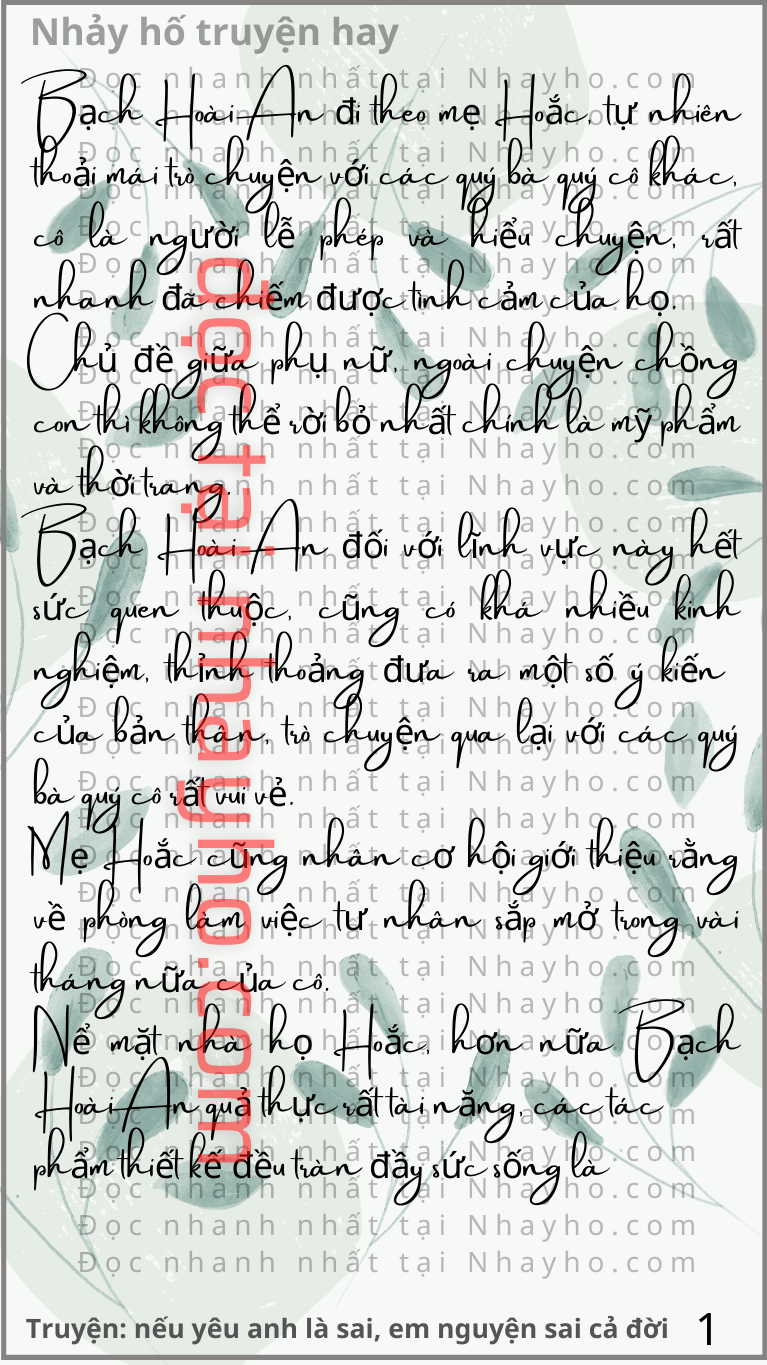 Nhảy hố truyện hay
Bạch Hoài An đi theo mẹ Hoắc, tự nhiên
thoải mái trò chuyện với các quý bà quý cô khác,
cô là người lễ phép và hiểu chuyện, rất
nhanh đã chiếm được tình cảm của họ.
Chủ đề giữa phụ nữ, ngoài chuyện chồng
con thì không thể rời bỏ nhất chính là mỹ phẩm
và thời trang.
Bạch Hoài An đối với lĩnh vực này hết
sức quen thuộc, cũng có khá nhiều kinh
nghiệm, thỉnh thoảng đưa ra một số ý kiến
của bản thân, trò chuyện qua lại với các quý
bà quý cô rất vui vẻ.
Mẹ Hoắc cũng nhân cơ hội giới thiệu rằng
về phòng làm việc tư nhân sắp mở trong vài
tháng nữa của cô.
Nể mặt nhà họ Hoắc, hơn nữa Bạch
Hoài An quả thực rất tài năng, các tác
phẩm thiết kế đều tràn đầy sức sống là
đọc tại nhayho.com
Đọc nhanh nhất tại Nhayho.com
Đọc nhanh nhất tại Nhayho.com
Truyện: nếu yêu anh là sai, em nguyện sai cả đời 1